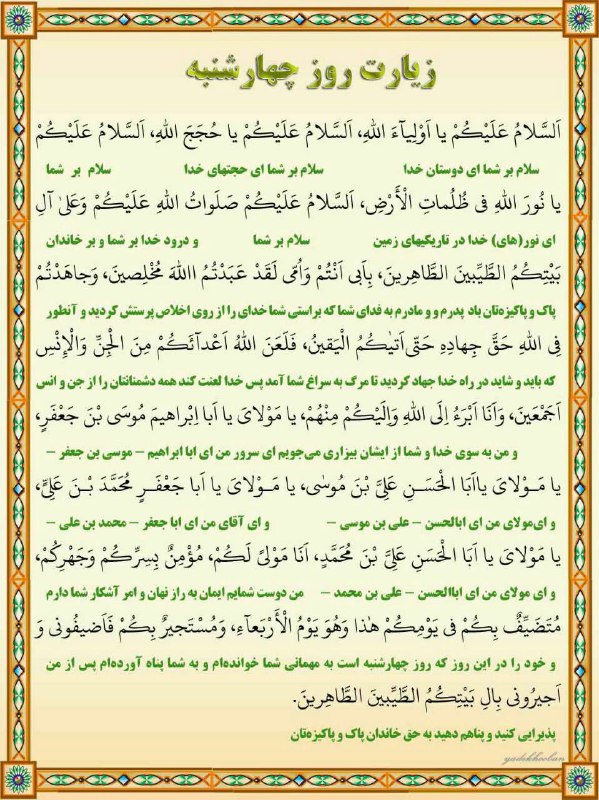 زیارت روز چهارشنبه
اَلسَّلامُ عَلَیْکُمْ یا اَوْلِیآءَ اللهِ، اَلسَّلامُ عَلَیْکُمْ یا حُجَجَ اللهِ، اَلسَّلامُ عَلَیْکُمْ
سلام بر شما ای دوستان خدا سلام بر شما ای حجتهای خدا سلام بر شما
یا نُورَ اللهِ فی ظُلُماتِ الْأَرْضِ، اَلسَّلامُ عَلَیْکُمْ صَلَواتُ اللهِ عَلَیْکُمْ وَعَلیٰ آلِ
ای نور(های) خدا در تاریکیهای زمین سلام بر شما و درود خدا بر شما و بر خاندان
بَیْتِکُمُ الطَّیِّبینَ الطَّاهِرینَ، بِاَبی اَنْتُمْ وَاُمّی لَقَدْ عَبَدْتُمُ اللهَ مُخْلِصینَ، وَجاهَدْتُمْ
پاک و پاکیزه‌تان باد پدرم و و مادرم به فدای شما که براستی شما خدای را از روی اخلاص پرستش کردید و آنطور
فِی اللهِ حَقَّ جِهادِهِ حَتّی اَتیٰکُمُ الْیَقینُ، فَلَعَنَ اللهُ اَعْدآئَکُمْ مِنَ الْجِنِّ وَالْإِنْسِ
که باید و شاید در راه خدا جهاد کردید تا مرگ به سراغ شما آمد پس خدا لعنت کند همه دشمنانتان را از جن و انس
اَجْمَعینَ، وَاَنَا اَبْرَءُ اِلَی اللهِ وَاِلَیْکُمْ مِنْهُمْ، یا مَوْلایَ یا اَبا اِبْراهیمَ مُوسَی بْنَ جَعْفَرٍ،
و من به سوی خدا و شما از ایشان بیزاری می‌جویم ای سرور من ای ابا ابراهیم – موسی بن جعفر –
یا مَوْلایَ یااَبَا الْحَسَنِ عَلِیَّ بْنَ مُوسٰی، یا مَوْلایَ یا اَبا جَعْفَرٍ مُحَمَّدَ بْنَ عَلِیٍّ،
و ای‌مولای من ای ابالحسن – علی بن موسی – و ای آقای من ای ابا جعفر – محمد بن علی –
یا مَوْلایَ یا اَبَا الْحَسَنِ عَلِیَّ بْنَ مُحَمَّدٍ، اَنَا مَوْلیً لَکُمْ، مُؤْمِنٌ بِسِرِّکُمْ وَجَهْرِکُمْ،
و ای مولای من ای اباالحسن – علی بن محمد – من دوست شمایم ایمان به راز نهان و امر آشکار شما دارم
مُتَضَیِّفٌ بِکُمْ فی یَوْمِکُمْ هٰذا وَهُوَ یَوْمُ الْأَرْبَعآءِ، وَمُسْتَجیرٌ بِکُمْ فَاَضیفُونی وَ
و خود را در این روز که روز چهارشنبه است به مهمانی شما خوانده‌ام و به شما پناه آورده‌ام پس از من
اَجیرُونی بِالِ بَیْتِکُمُ الطَّیِّبینَ الطَّاهِرینَ.
پذیرایی کنید و پناهم دهید به حق خاندان پاک و پاکیزه‌تان
yadekhooban